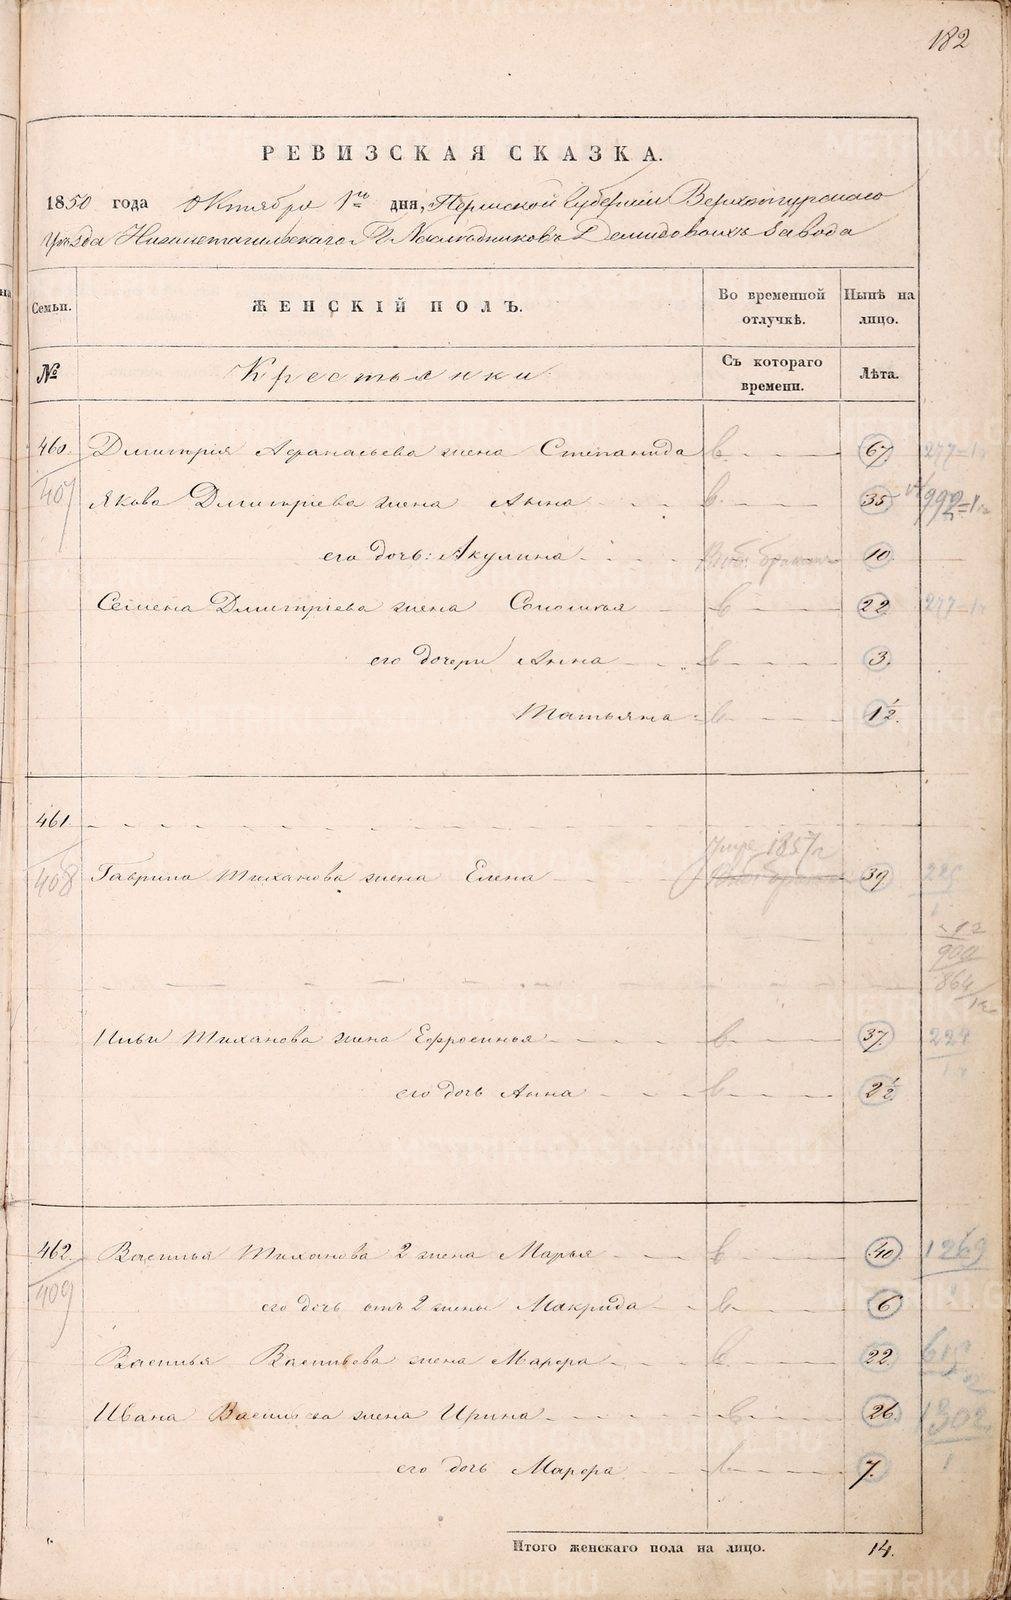 182
РЕВИЗСКАЯ СКАЗКА.
1850 года Октября 1го дня, Пермской Губерніи Верхотурскаго
Уѣзда Нижнетагильскаго Г. Наслѣдниковъ Демидовыхъ Завода
Семьи. ЖЕНСКІЙ ПОЛЪ. Во временной отлучкѣ. Нынѣ на лицо.
№ Крестьянки. Съ котораго времени. Лѣта.
460. Дмитрія Афанасьева жена Степанида в 67. 277=1
407 Якова Дмитріева жена Анна в 35
его дочь: Акулина 10.
Семена Дмитріева жена Соломея в 22 277=1
его дочери Анна в 3.
Татьяна в 1 1/2.
461.
умре 1857 г
408 Гаврила Тиханова жена Елена 39
12
900
864
Ильи Тиханова жена Ефросинья в 37.
его дочь Анна в 2 1/2.
462. Василья Тиханова 2 жена Марья в 40. 1269
409 его дочь отъ 2 жены Макрида в 6
Василья Васильева жена Марфа в 22.
Ивана Васильева жена Ирина в 26. 1302
его дочь Марфа в 7.
Итого женскаго пола на лицо. 14.
METRIKI.GASO-URAL.RU